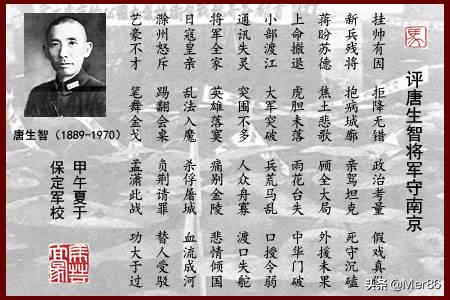 评唐生智将军守南京
挂帅有因 拒降无错 政治考量 假戏真
新兵残将 抱病城廓 亲驾坦克 死守沉磕
蒋盼苏德 焦土悲歌 顾全大局 外援未果
上命撤退 虎胆未落 雨花台失 中华门破
小部渡江 大军突破 兵荒马乱 口授令弱
通讯失灵 突围不多 人众舟寡 渡口失舵
将军全家 英雄落寞 痛别金陵 悲情倾国
日寇皇亲 乱法入魔 杀俘屠城 血流成河
滁州怒斥 踢翻会桌 负荆请罪 替人受驳
艺豪不才 笔舞金戈 孟潇此战 功大于过
唐生智（1889-1970）
甲午夏于
保定军校
头条 @Mer86